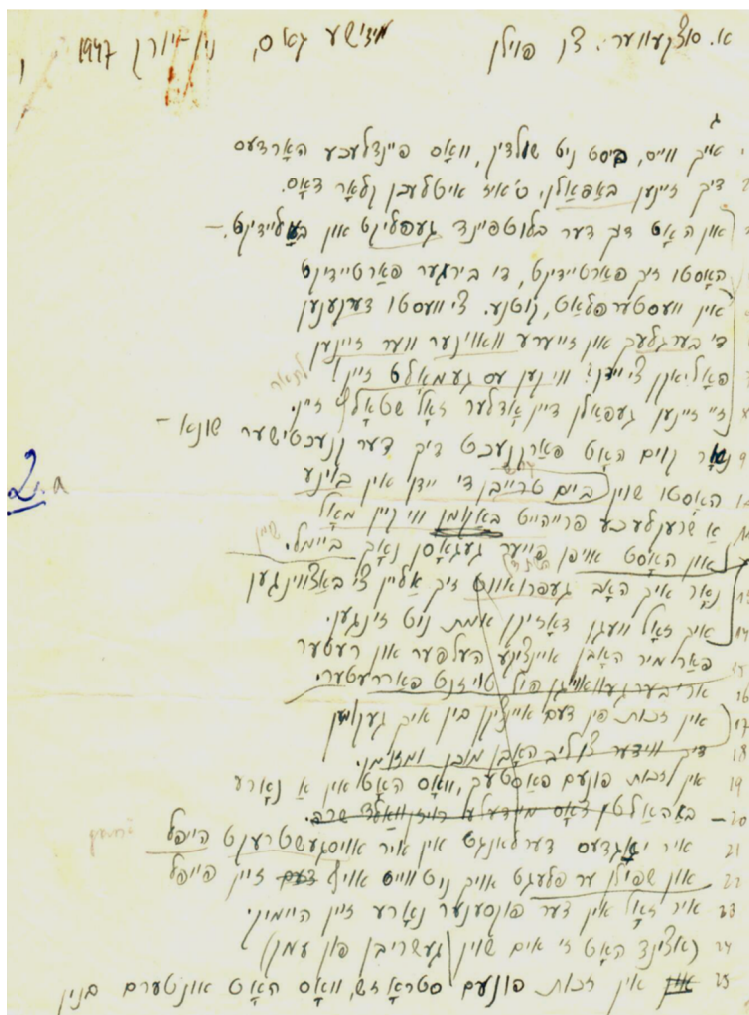 א. סוצקעווער: צו פוילן ייִדישע גאַס, ניו-יורק 1947
ג
איך ווייס, ביסט ניט שולדיק, וואָס פיינדלעכע האָרדעס
דיך זיינען באַפאַלן. ס'איז איטלעכן קלאָר דאָס.
און האָט דיך דער בלוטפיינד געפליקט און באַליידיקט –
האָסטו זיך פאַרטיידיקט, די בירגער פאַרטיידיקט
אין וועסטערפּלאַט, קוטנע. צי וועסטו דערקענען
די בערגלעך און זייערע וואוינער ווער זיינען
פּאָליאַקן צי יידן? ווי קען עס געמאָלט זיין!
זיי זיינען געפאַלן דיין אָדלער זאָל שטאָלץ זיין.
9 נאָר קוים האָט פאַרקנעכט דיך דער קנעכטישער שונא –
האָסטו שוין ביים טרייבן די יידן אין בוינע
אַ שרעקלעכע פרייהייט באַקומען ווי קיין מאָל
און האָסט אויפן פייער געגאָסן נאָך ביימל.
נאָר איך האָב געפּרואווט זיך אַליין צו באַצווינגען
14 איך זאָל וועגן דאָזיקן אמת ניט זינגען.
פאַר מיר האָבן איינציקע העלפער און רעטער
16 אַריבערגעוואויגן פיל טויזנט פאַררעטער.
17 אין זכות פון דעם איינציקן בין איך געקומען
18 דיך ווידער צוליב האָבן מוכן ומזומן.
19 אין זכות פונעם פּאַסטעך, וואָס האָט אין אַ נאָרע
20 באַהאַלטן דאָס מיידעלע רויזוואַלד שרה.
21 איר יאַגדעס דערלאַנגט אין איר אויסגעשטרעקט הייפל
22 און שפּילן ער פלעגט אויך ניט ווייט אויף דעם זיין פייפל
23 איר זאָל אין דער פונסענער נאָרע זיין היימיק.
24 (אַצינד האָט זי אים שוין געשריבן פון עמק)
25 און אין זכות פונעם סטראָזש, וואָס האָט אונטערם בנין
2.a